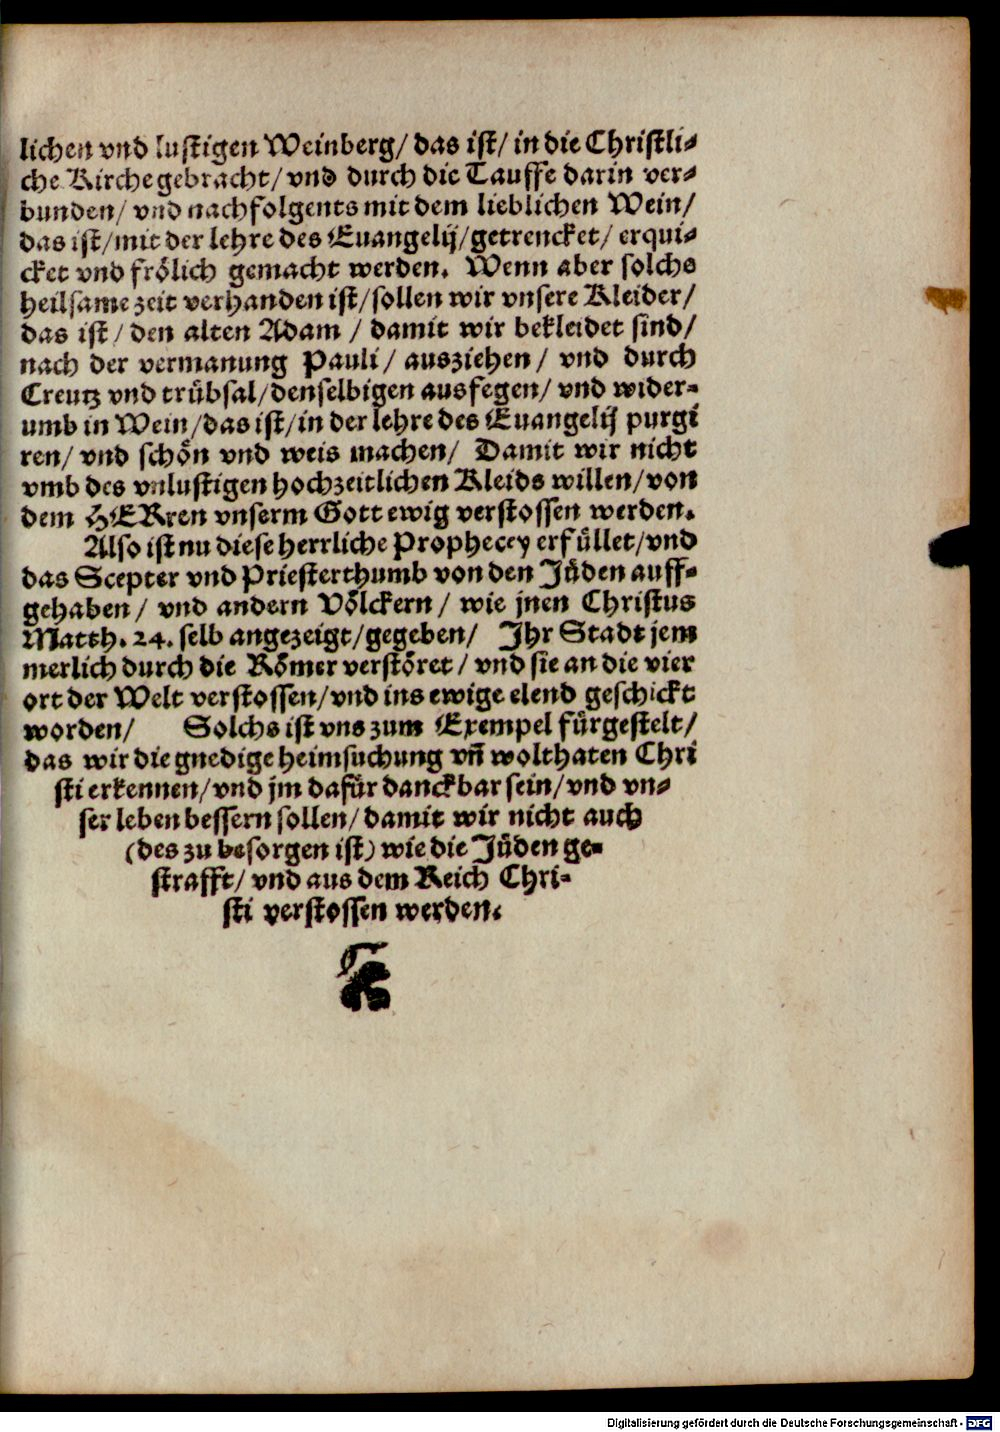 lichen vnd lustigen Weinberg/ das ist/ in die Christli-
che Kirche gebracht/ vnd durch die Tauffe darin ver-
bunden/ vnd nachfolgents mit dem lieblichen Wein/
das ist/ mit der lehre des Euangelij/ getrencket/ erqui-
cket vnd frölich gemacht werden. Wenn aber solchs
heilsame zeit verhanden ist/ sollen wir vnsere Kleider/
das ist/ den alten Adam/ damit wir bekleidet sind/
nach der vermanung Pauli/ ausziehen/ vnd durch
Creutz vnd trübsal/ denselbigen ausfegen/ vnd wider-
umb in Wein/ das ist/ in der lehre des Euangelij purgi
ren/ vnd schön vnd weis machen/ Damit wir nicht
vmb des vnlustigen hochzeitlichen Kleids willen/ von
dem HERren vnserm Gott ewig verstossen werden.
Also ist nu diese herrliche Prophecey erfüllet/ vnd
das Scepter vnd Priesterthumb von den Jüden auff-
gehaben/ vnd andern Völckern/ wie jnen Christus
Matth. 24. selb angezeigt/ gegeben/ Ihr Stadt jem
merlich durch die Römer verstöret/ vnd sie an die vier
ort der Welt verstossen/ vnd ins ewige elend geschickt
worden/ Solchs ist vns zum Exempel fürgestelt/
das wir die gnedige heimsuchung vn̄ wolthaten Chri
sti erkennen/ vnd jm dafür danckbar sein/ vnd vn-
ser leben bessern sollen/ damit wir nicht auch
(des zu besorgen ist) wie die Jüden ge-
strafft/ vnd aus dem Reich Chri-
sti verstossen werden.
Digitalisierung gefördert durch die Deutsche Forschungsgemeinschaft - DFG